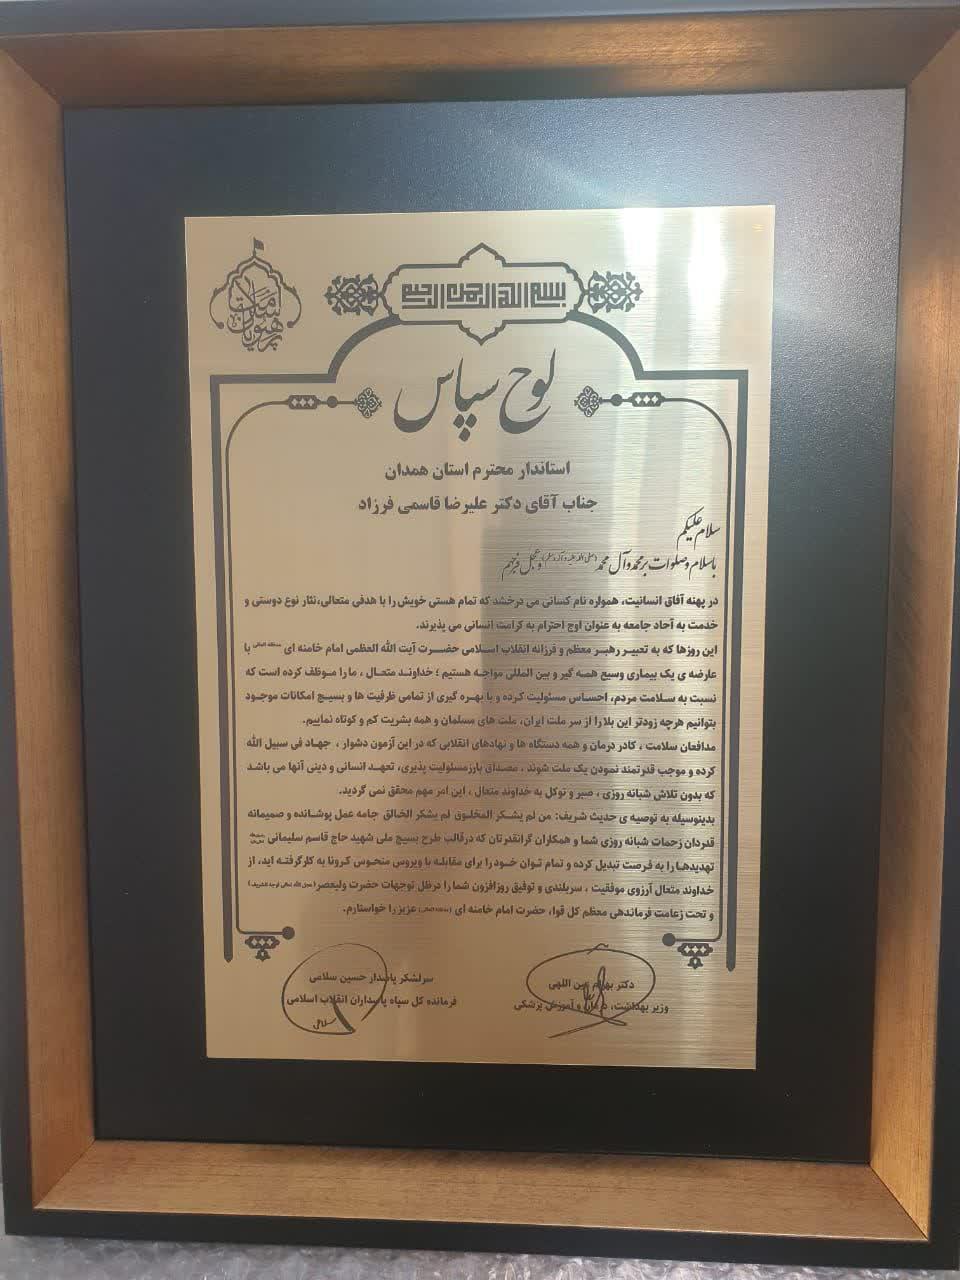 بسم الله الرحمن الرحیم
لوح سپاس
استاندار محترم استان همدان
جناب آقای دکتر علیرضا قاسمی فرزاد
سلام علیکم
با سلام و صلوات بر محمد و آل محمد (صلی الله علیه و آله وسلم) و عجل فرجهم
در پهنه آفاق انسانیت، همواره نام کسانی می درخشد که تمام هستی خویش را با هدفی متعالی،نثار نوع دوستی و
خدمت به آحاد جامعه به عنوان اوج احترام به کرامت انسانی می پذیرند.
این روزها که به تعبیر رهبر معظم و فرزانه انقلاب اسلامی حضرت آیت الله العظمی امام خامنه ای با
عارضه ی یک بیماری وسیع همه گیر و بین المللی مواجه هستیم ؛ خداوند متعال ، ما را موظف کرده است که
نسبت به سلامت مردم، احساس مسئولیت کرده و با بهره گیری از تمامی ظرفیت ها و بسیج امکانات موجود
بتوانیم هرچه زودتر این بلا را از سر ملت ایران، ملت های مسلمان و همه بشریت کم و کوتاه نماییم.
مدافعان سلامت ، کادر درمان و همه دستگاه ها و نهادهای انقلابی که در این آزمون دشوار ، جهاد فی سبیل الله
کرده و موجب قدرتمند نمودن یک ملت شوند ، مصداق بارز مسئولیت پذیری، تعهد انسانی و دینی آنها می باشد
که بدون تلاش شبانه روزی ، صبر و توکل به خداوند متعال ، این امر مهم محقق نمی گردید.
بدینوسیله به توصیه ی حدیث شریف: من لم یشکر المخلوق لم یشکر الخالق جامه عمل پوشانده و صمیمانه
قدردان زحمات شبانه روزی شما و همکاران گرانقدرتان که درقالب طرح بسیج ملی شهید حاج قاسم سلیمانی
تهدیدها را به فرصت تبدیل کرده و تمام توان خود را برای مقابله با ویروس منحوس کرونا به کارگرفته اید، از
خداوند متعال آرزوی موفقیت ، سربلندی و توفیق روزافزون شما را درظل توجهات حضرت ولیعصر
و تحت زعامت فرماندهی معظم کل قوا، حضرت امام خامنه ای عزیز را خواستارم.
دکتر بهرام عین اللهی
وزیر بهداشت، درمان و آموزش پزشکی
سرلشکر پاسدار حسین سلامی
فرمانده کل سپاه پاسداران انقلاب اسلامی